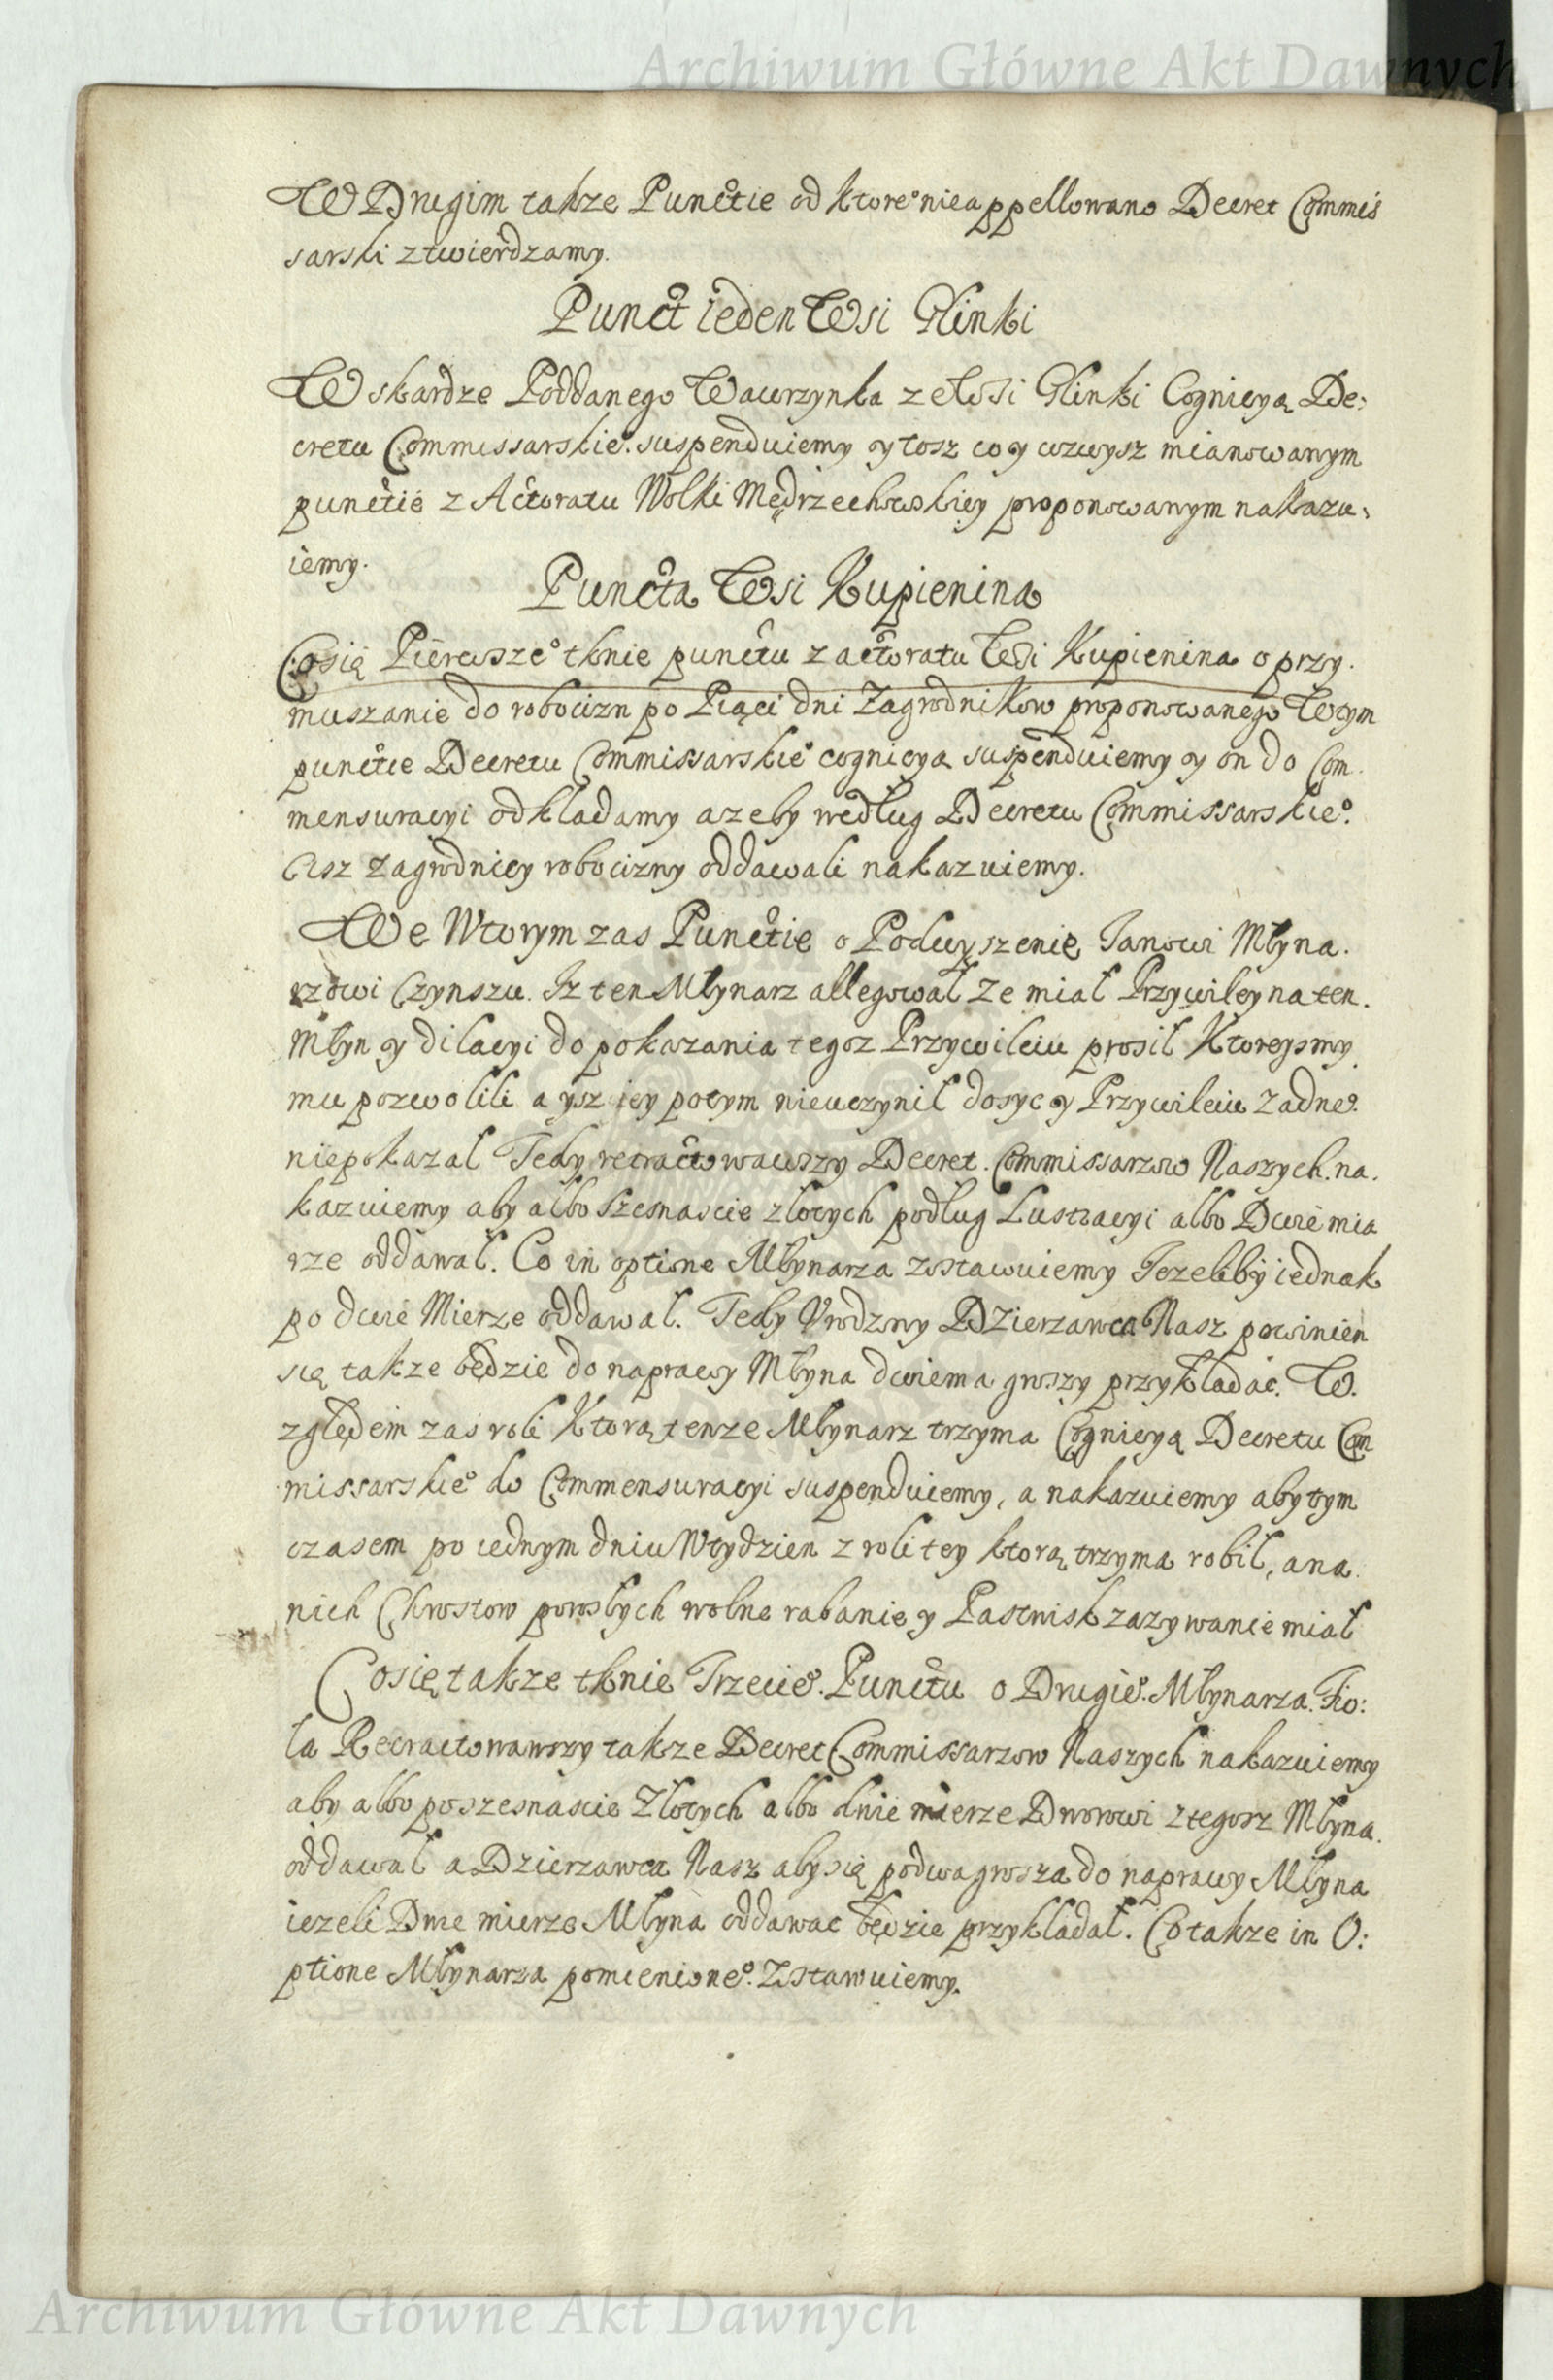 Archiwum Główne Akt Dawnych
W Drugim takze Punctie od ktore° nieappellowano Decret Commis
sarski ztwierdzamy.
Punct ieden Wsi Glinki
W skardze Poddanego Wawrzynka ze Wsi Glinki Cognicyą De:
cretu Commissarskie°. suspenduiemy y tosz co y wzwysz mianowanym
punctie z Actoratu Wolki Mędrzechowskiey proponowanym nakazu:
iemy.
Puncta Wsi Kupienina
Co się Pierwsze° tknie punctu z actoratu Wsi Kupienina o przy.
muszanie do robocizn po Piąci dni Zagrodnikow proponowanego W tym
punctie Decretu Commissarskie° cognicyą suspenduiemy y on do Com.
mensuracyi odkladamy azeby według Decretu Commissarskie°.
Cisz Zagrodnicy robocizny oddawali nakazuiemy.
We Wtorym zas Punctie o Podwyszenie Janowi Młyna.
rzowi Czynszu. Iz ten Młynarz allegował Ze miał Przywiley na ten.
Młyn y dilacyi do pokazania tegoz Przywileiu prosił Ktoreysmy
mu pozwolili a ysz iey potym nieuczynił dosyc y Przywileiu zadne°.
niepokazał Tedy retractowawszy Decret. Commissarzow Naszych. na.
kazuiemy aby albo szesnascie złotych podług Lustracyi albo Dwie mia
rze oddawał. Co in optione Młynarza zostawuiemy Jezeliby iednak
po dwie Mierze oddawał. Tedy Urodzony Dzierzawca Nasz powinien
się takze będzie do naprawy Młyna dwiema groszy przykładać. W.
zględem zas roli Ktorą tenze Młynarz trzyma Cognicyą Decretu Com
missarskie° do Commensuracyi suspenduiemy, a nakazuiemy aby tym
czasem po iednym dniu W tydzien z roli tey ktorą trzyma robił, a na.
nich Chrostow porosłych wolne rabanie y Pastwisk zazywanie miał
Co się takze tknie Trzecie°. Punctu o Drugie°. Młynarza. Fio:
ła Retractowawszy takze Decret Commissarzow Naszych nakazuiemy
aby albo po szesnascie Złotych albo dwie mierze Dworowi z tegosz Młyna.
oddawał a Dzierzawca Nasz aby się po dwa grosza do naprawy Młyna
iezeli Dwie mierze Młyna oddawac będzie przykładał. Co takze in O:
ptione Młynarza pomienione°. Zostawuiemy.
Archiwum Główne Akt Dawnych